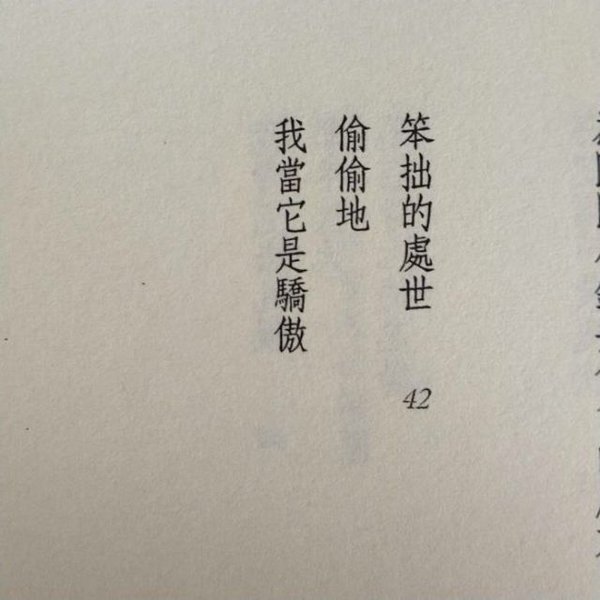 笨拙的處世
42
偷偷地
我當它是驕傲